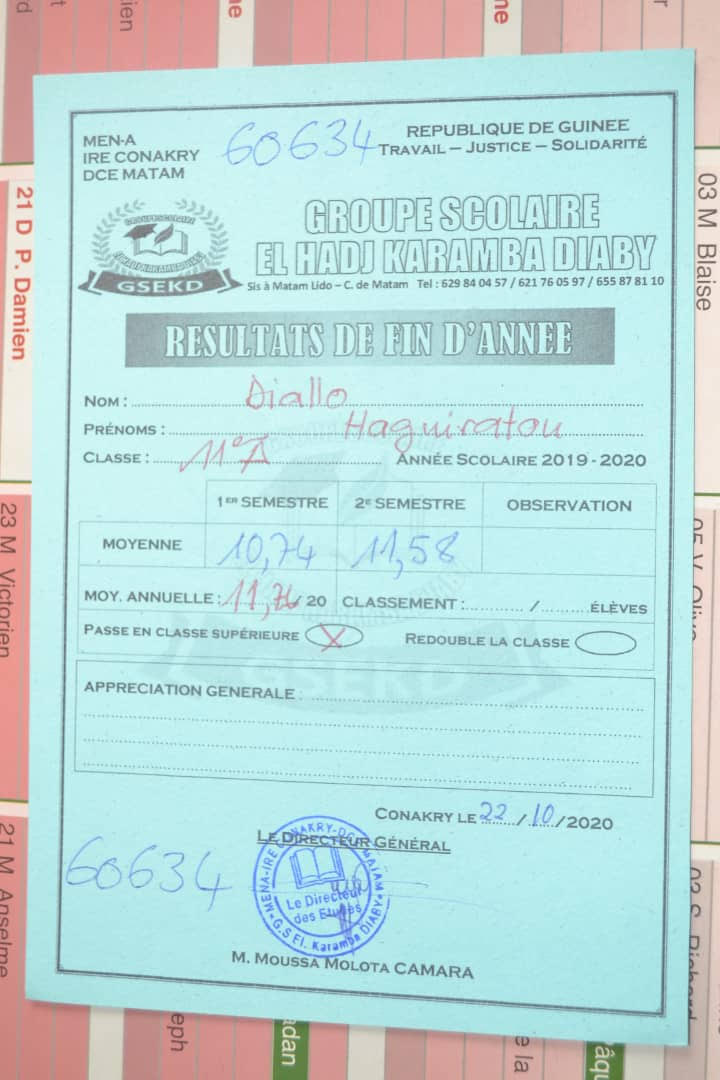 MEN-A
IRE CONAKRY
DCE MATAM
60634
REPUBLIQUE DE GUINEE
TRAVAIL – JUSTICE – SOLIDARITÉ
GROUPE SCOLAIRE
EL HADJ KARAMBA DIABY
GSEKD
Sis à Matam Lido – C. de Matam Tel : 629 84 04 57 / 621 76 05 97 / 655 87 81 10
RESULTATS DE FIN D'ANNEE
NOM : Diallo
PRÉNOMS : Haguiratou
CLASSE : 11e A ANNÉE SCOLAIRE 2019 - 2020
1ER SEMESTRE 2E SEMESTRE OBSERVATION
MOYENNE 10,74 11,58
MOY. ANNUELLE : 11,76/20 CLASSEMENT : / ÉLÈVES
PASSE EN CLASSE SUPÉRIEURE X REDOUBLE LA CLASSE
GSEKD
APPRECIATION GENERALE :
CONAKRY LE 22/10/2020
LE DIRECTEUR GÉNÉRAL
60634
Le Directeur
des Etudes
M. MOUSSA MOLOTA CAMARA
21 D P. Damien
23 M Victorien
21 M Anselme
03 M Blaise